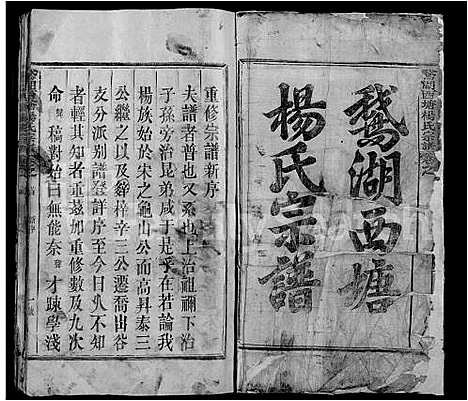 鵝湖西塘
楊氏宗譜
重修宗譜新序
夫譜者普也又系也上治祖禰下治
子孫旁治昆弟咸于是乎在若論我
楊族始於宋之龜山公而高昇泰三
公繼之以及辭梓辛三公遷喬出谷
支分派別譜登詳序至今日人不知
者輕其知者重茲加重修數及九次
命 稿對始曰無能奈 才踈學淺